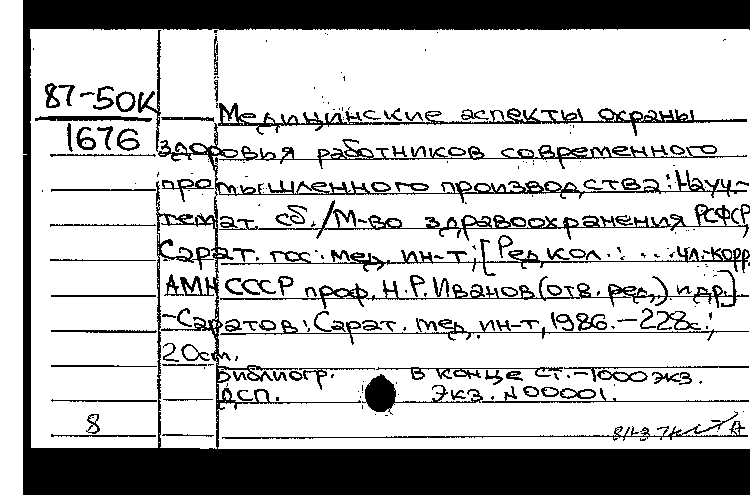 87-50К
1676
Медицинские аспекты охраны
здоровья работников современного
промышленного производства: Науч.-
темат. сб. / М-во здравоохранения РСФСР,
Сарат. гос. мед. ин-т; [Редкол.: ... чл.-корр.
АМН СССР проф. Н.Р. Иванов (отв. ред.) и др.]
-Саратов: Сарат. мед. ин-т, 1986.-228с.;
20см.
Библиогр. в конце ст.-1000 экз.
ДСП. Экз. N 00001.
8